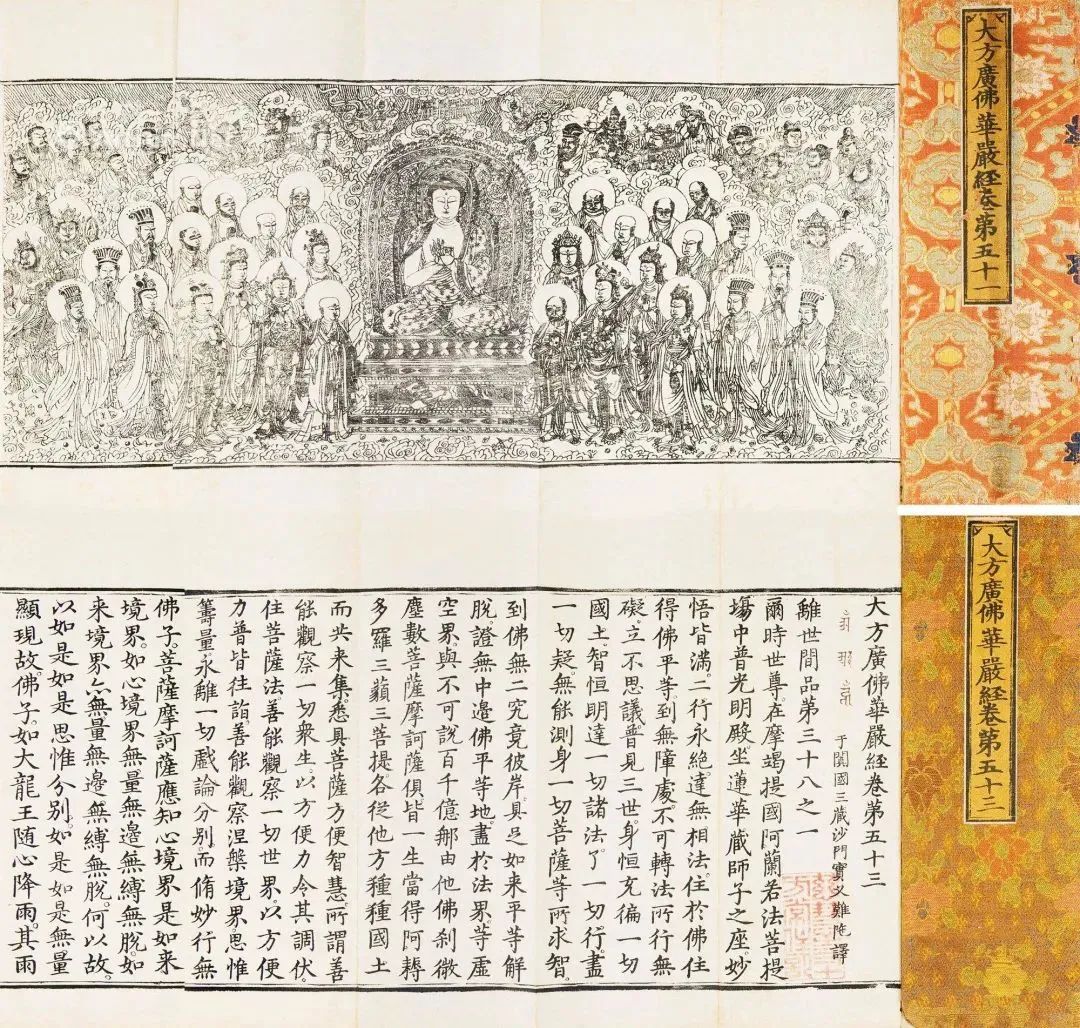 大方廣佛華嚴經卷第五十一
大方廣佛華嚴經卷第五十三
大方廣佛華嚴經卷第五十三
于闐國三藏沙門實叉難陁譯
離世間品第三十八之一
爾時世尊。在摩竭提國阿蘭若法菩提
場中普光明殿。坐蓮華藏師子之座。妙
悟皆滿。二行永絕。達無相法。住於佛住。
得佛平等。到無障處。不可轉法。所行無
礙。立不思議。普見三世。身恒充徧一切
國土。智恒明達一切諸法。了一切行。盡
一切疑。無能測身。一切菩薩等所求智。
到佛無二究竟彼岸。具足如来平等解
脫。證無中邊佛平等地。盡於法界。等虛
空界。與不可說百千億那由他佛刹微
塵數菩薩摩訶薩俱。皆一生當得阿耨
多羅三藐三菩提。各從他方種種國土
而共来集。悉具菩薩方便智慧。所謂善
能觀察一切衆生。以方便力。令其調伏。
住菩薩法。善能觀察一切世界。以方便
力普皆往詣。善能觀察涅槃境界。思惟
籌量。永離一切戲論分別。而脩妙行無
佛子。菩薩摩訶薩應知心境界是如来
境界。如心境界無量無邊無縛無脫。如
来境界亦無量無邊無縛無脫。何以故。
以如是如是思惟分別。如是如是無量
顯現故。佛子。如大龍王随心降雨。其雨